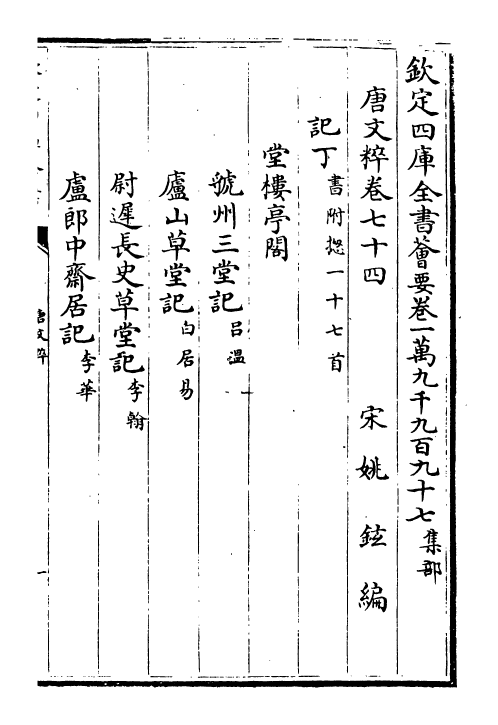 欽定四庫全書薈要卷一萬九千九百九十七集部
唐文粹卷七十四 宋姚鉉編
記丁書附揔一十七首
堂樓亭閣
虢州三堂記吕温
廬山草堂記白居易
尉遲長史草堂記李翰
盧郎中齋居記李華
唐文粹
一